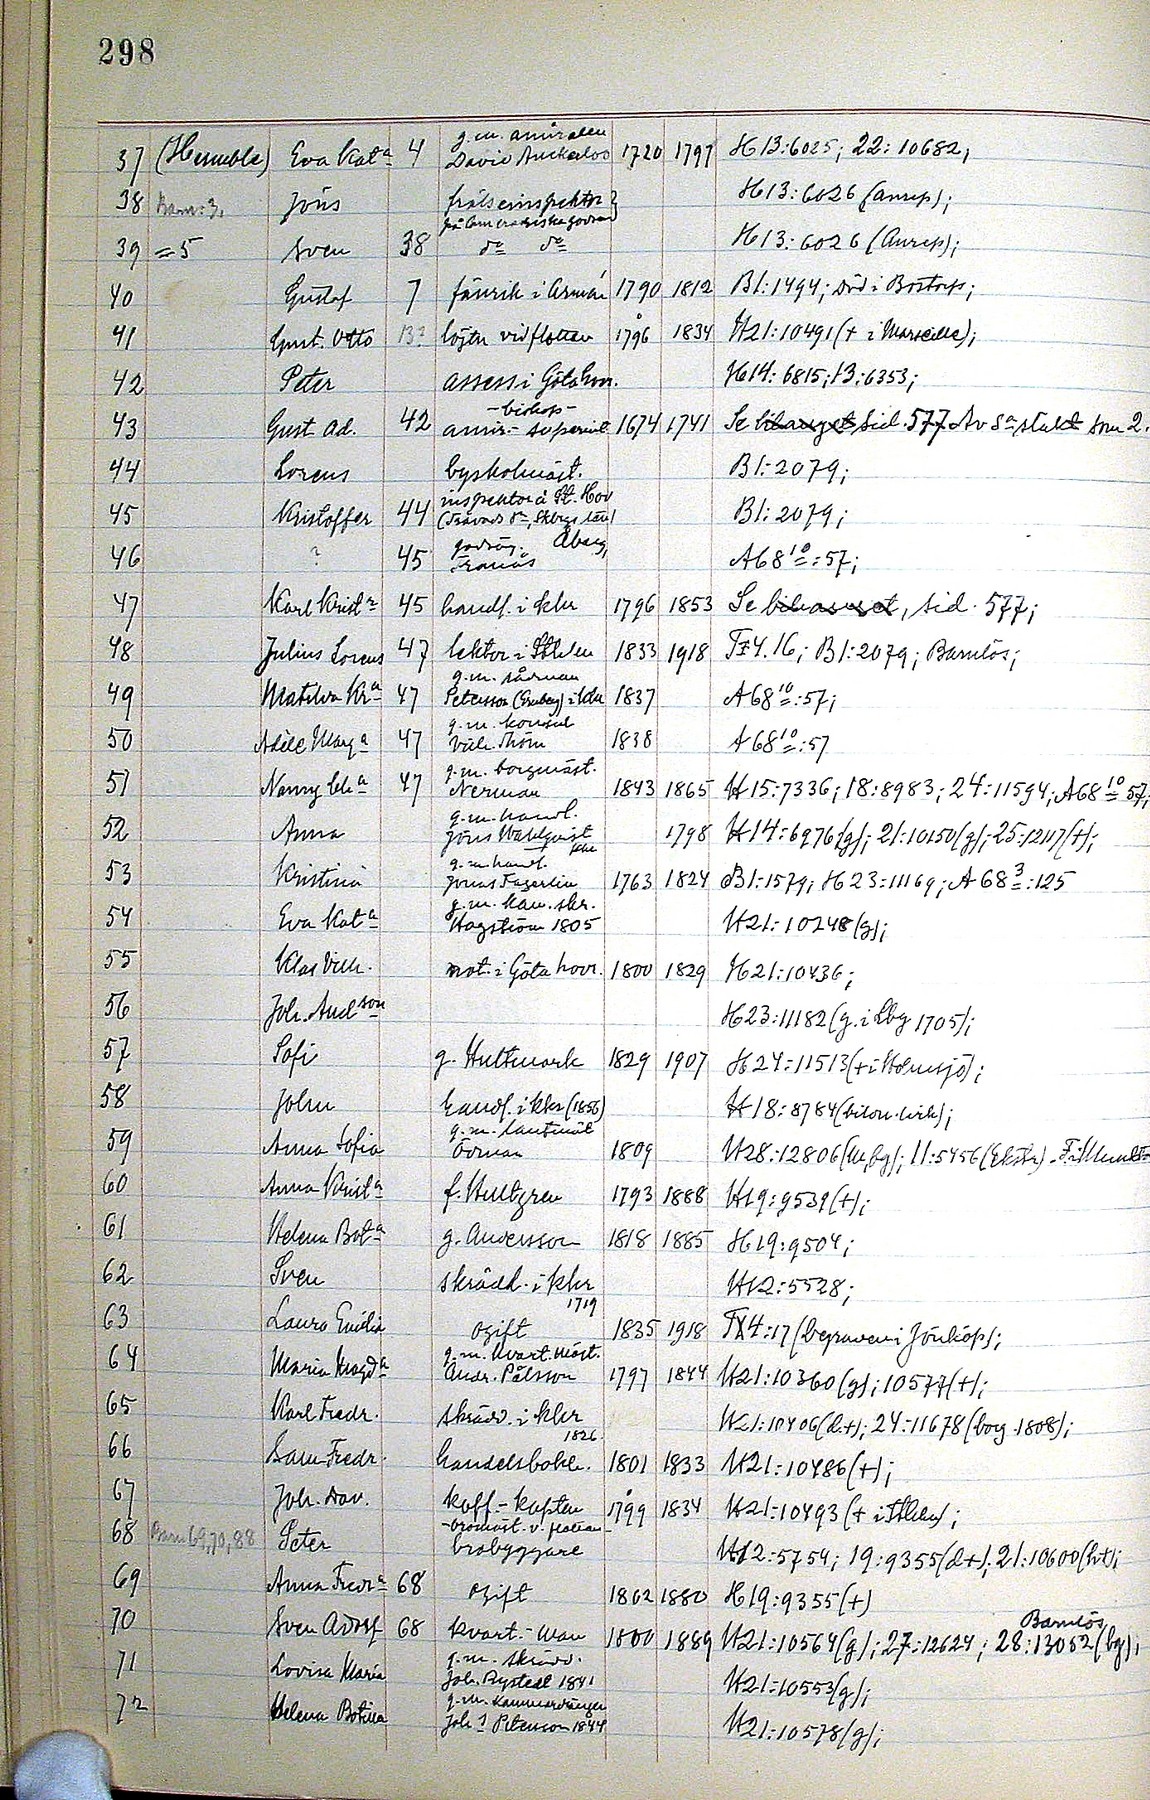 298
37 (Humble) Eva Kat:a 4 g.m. amiralen David Ankarloo 1720 1797 H13:6025; 22:10682;
38 Barn:3. Jöns frälseinspektor H13:6026 (Anrep);
39 =5 Sven 38 do do H13:6026 (Anrep);
40 Gustaf 7 fänrik i Armén 1790 1812 B1:1494; död i Bostorp;
41 Gust. Otto 13? löjtn vid flottan 1796 1834 H21:10491 (+ i Marseille);
42 Peter assess i Göta hovr. H14:6815; 13:6353;
43 Gust Ad. 42 -biskop- amir.- superint 1674 1741 Se bihanget sid. 577 Av sa släkt som 2.
44 Lorens byskolmäst. B1:2079;
45 Kristoffer 44 inspektor å St. Hov B1:2079;
46 ? 45 Tranås A68 10:57;
47 Karl Krist:n 45 handl. i Khr 1796 1853 Se bihanget, sid. 577;
48 Julius Lorens 47 lektor i Sthlm 1833 1918 TX4.16; B1:2079; Barnlös;
49 Matilda Kr:a 47 g.m. rådman Petersson i Khr 1837 A68 10:57;
50 Adèle Marg:a 47 g.m. konsul Vilh. Thörn 1838 A68 10:57
51 Nanny Ch:a 47 g.m. borgmäst. Nerman 1843 1865 H15:7336; 18:8983; 24:11594; A68 10:57;
52 Anna g.m. handl. Jöns Wahlqvist 1798 H14:6976(g); 21:10150(g); 25:12117(+);
53 Kristina g.m. handl. Jonas Fagerlin 1763 1824 B1:1579; H23:11169; A68 3:125
54 Eva Kat:a g.m. kam.skr. Hagström 1805 H21:10248(g);
55 Klas Vilh. not. i Göta hovr. 1800 1829 H21:10436;
56 Joh. And:son H23:11182 (g. i Lbg 1705);
57 Sofi g. Hultmark 1829 1907 H24:11513 (+ i Holmsjö);
58 John handl. i Khr (1856) H18:8784
59 Anna Sofia g.m. lantmät Örman 1809 H28:12806; 11:5456
60 Anna Krist:a f. Hultgren 1793 1888 H19:9539(+);
61 Helena Bot:a g. Andersson 1818 1885 H19:9504;
62 Sven skrädd. i Khr 1719 H12:5528;
63 Laura Emilia ogift 1835 1918 TX4:17 (begraven i Jönköp);
64 Maria Magd:a g.m. Kvart.mäst. Andr. Pålsson 1797 1844 H21:10360(g); 10577(+);
65 Karl Fredr. skrädd. i Khr 1826 H21:10406(d+); 24:11678 (borg 1808);
66 Sam Fredr. handelsbokh. 1801 1833 H21:10486(+);
67 Joh. Dav. koff.-kapten 1799 1834 H21:10493 (+ i Sthlm);
68 Barn 69,70,88 Peter brobyggare H12:5754; 19:9355(d+); 21:10600
69 Anna Fredr:a 68 ogift 1862 1880 H19:9355(+)
70 Sven Adolf 68 kvart.-man 1800 1889 H21:10564(g); 27:12624; 28:13052(bg); Barnlös
71 Lovisa Maria g.m. skrädd. Joh. Rystedt 1841 H21:10553(g);
72 Helena Botilla g.m. Joh. J Peterson 1844 H21:10578(g);